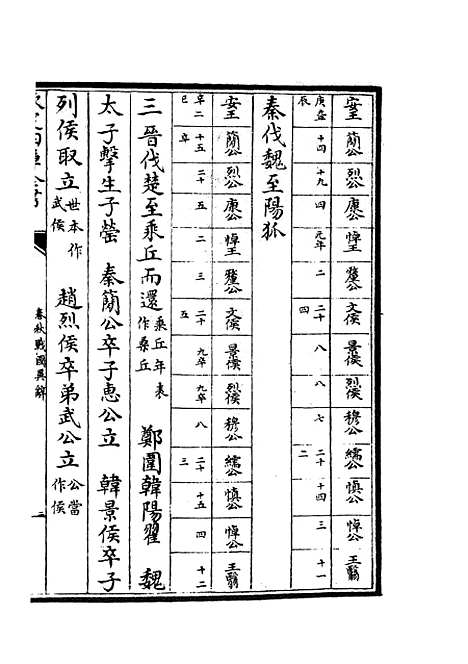 安王 簡公 烈公 康公 悼王 釐公 文侯 景侯 烈侯 穆公 繻公 慎公 悼公 王翳
庚辰 十四 十九 四 元年 二 二十四 八 八 七 二十二 十四 三 十一
秦伐魏至陽狐
安王 簡公 烈公 康公 悼王 釐公 文侯 景侯 烈侯 穆公 繻公 慎公 悼公 王翳
辛巳二 十五卒 二十 五 二 三 二十五 九卒 九卒 八 二十三 十五 四 十二
三晉伐楚至乘丘而還 乘丘年表作桑丘 鄭圍韓陽翟 魏
太子擊生子罃 秦簡公卒子惠公立 韓景侯卒子
列侯取立 世本作武侯 趙烈侯卒弟武公立 公當作侯
春秋戰國異辭